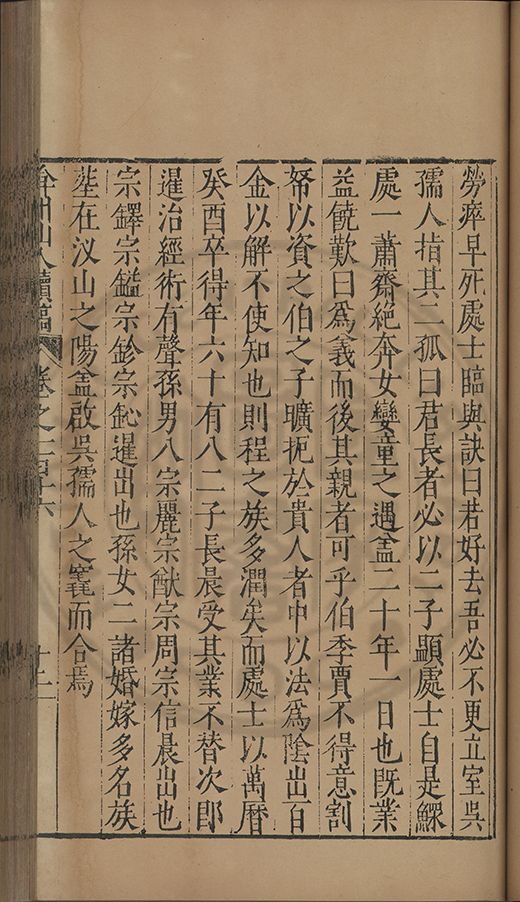 勞瘁早死處士臨與訣曰若好去吾必不更立室吳
孺人指其二孤曰君長者必以二子顯處士自是鰥
處一蕭齋絕奔女孌童之遇盖二十年一日也旣業
益饒歎曰爲義而後其親者可乎伯季賈不得意割
帑以資之伯之子曠扼於貴人者中以法爲隂出百
金以解不使知也則程之族多潤矣而處士以萬曆
癸酉卒得年六十有八二子長晨受其業不替次卽
暹治經術有聲孫男八宗麗宗猷宗周宗信晨出也
宗鐸宗鎰宗鉁宗鈊暹出也孫女二諸婚嫁多名族
塟在汊山之陽盖啟吳孺人之窆而合焉
弇州山人續稿 卷之一百十六 十二